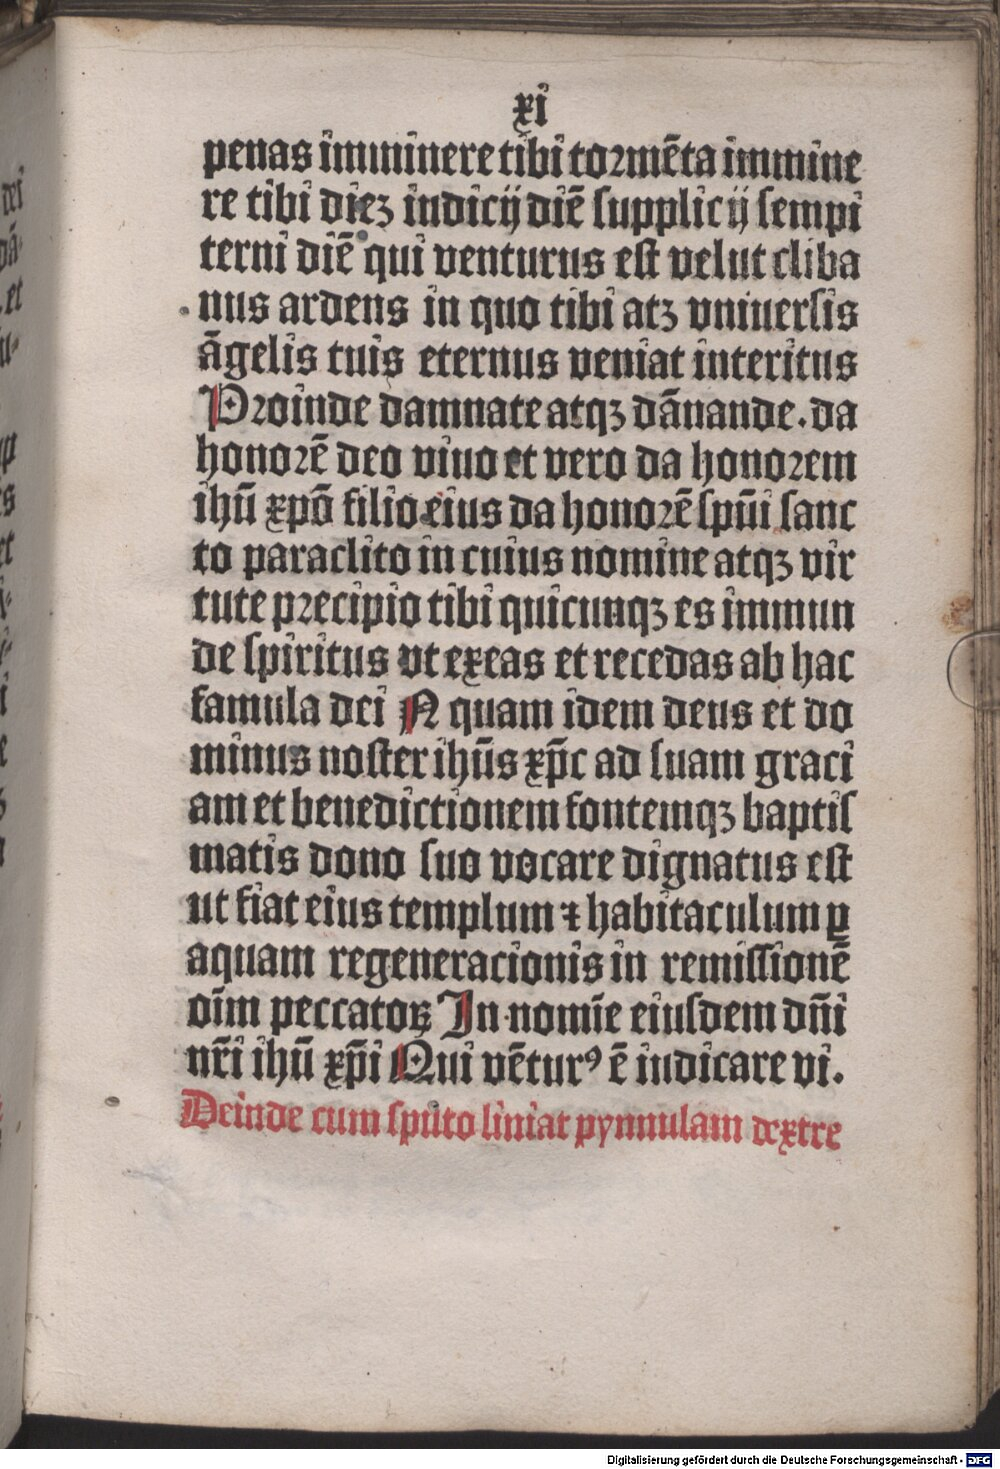 xi
penas imminere tibi tormēta immine
re tibi dieꝫ iudicij diē supplicij sempi
terni diē qui venturus est velut cliba
nus ardens in quo tibi atꝫ vniuersis
āgelis tuis eternus veniat interitus
Proinde damnate atqꝫ dānande. da
honorē deo viuo et vero da honorem
ihū xpō filio eius da honorē spūi sanc
to paraclito in cuius nomine atqꝫ vir
tute precipio tibi quicunqꝫ es immun
de spiritus vt exeas et recedas ab hac
famula dei N quam idem deus et do
minus noster ihūs xp̄c ad suam graci
am et benedictionem fontemqꝫ baptis
matis dono suo vocare dignatus est
ut fiat eius templum ⁊ habitaculum ꝑ
aquam regeneracionis in remissionē
oīm peccatoꝝ In nomīe eiusdem dn̄i
nr̄i ihū xp̄i Qui vētur⁹ ē iudicare vi.
Deinde cum sputo liniat pynnulam dextre
Digitalisierung gefördert durch die Deutsche Forschungsgemeinschaft - DFG